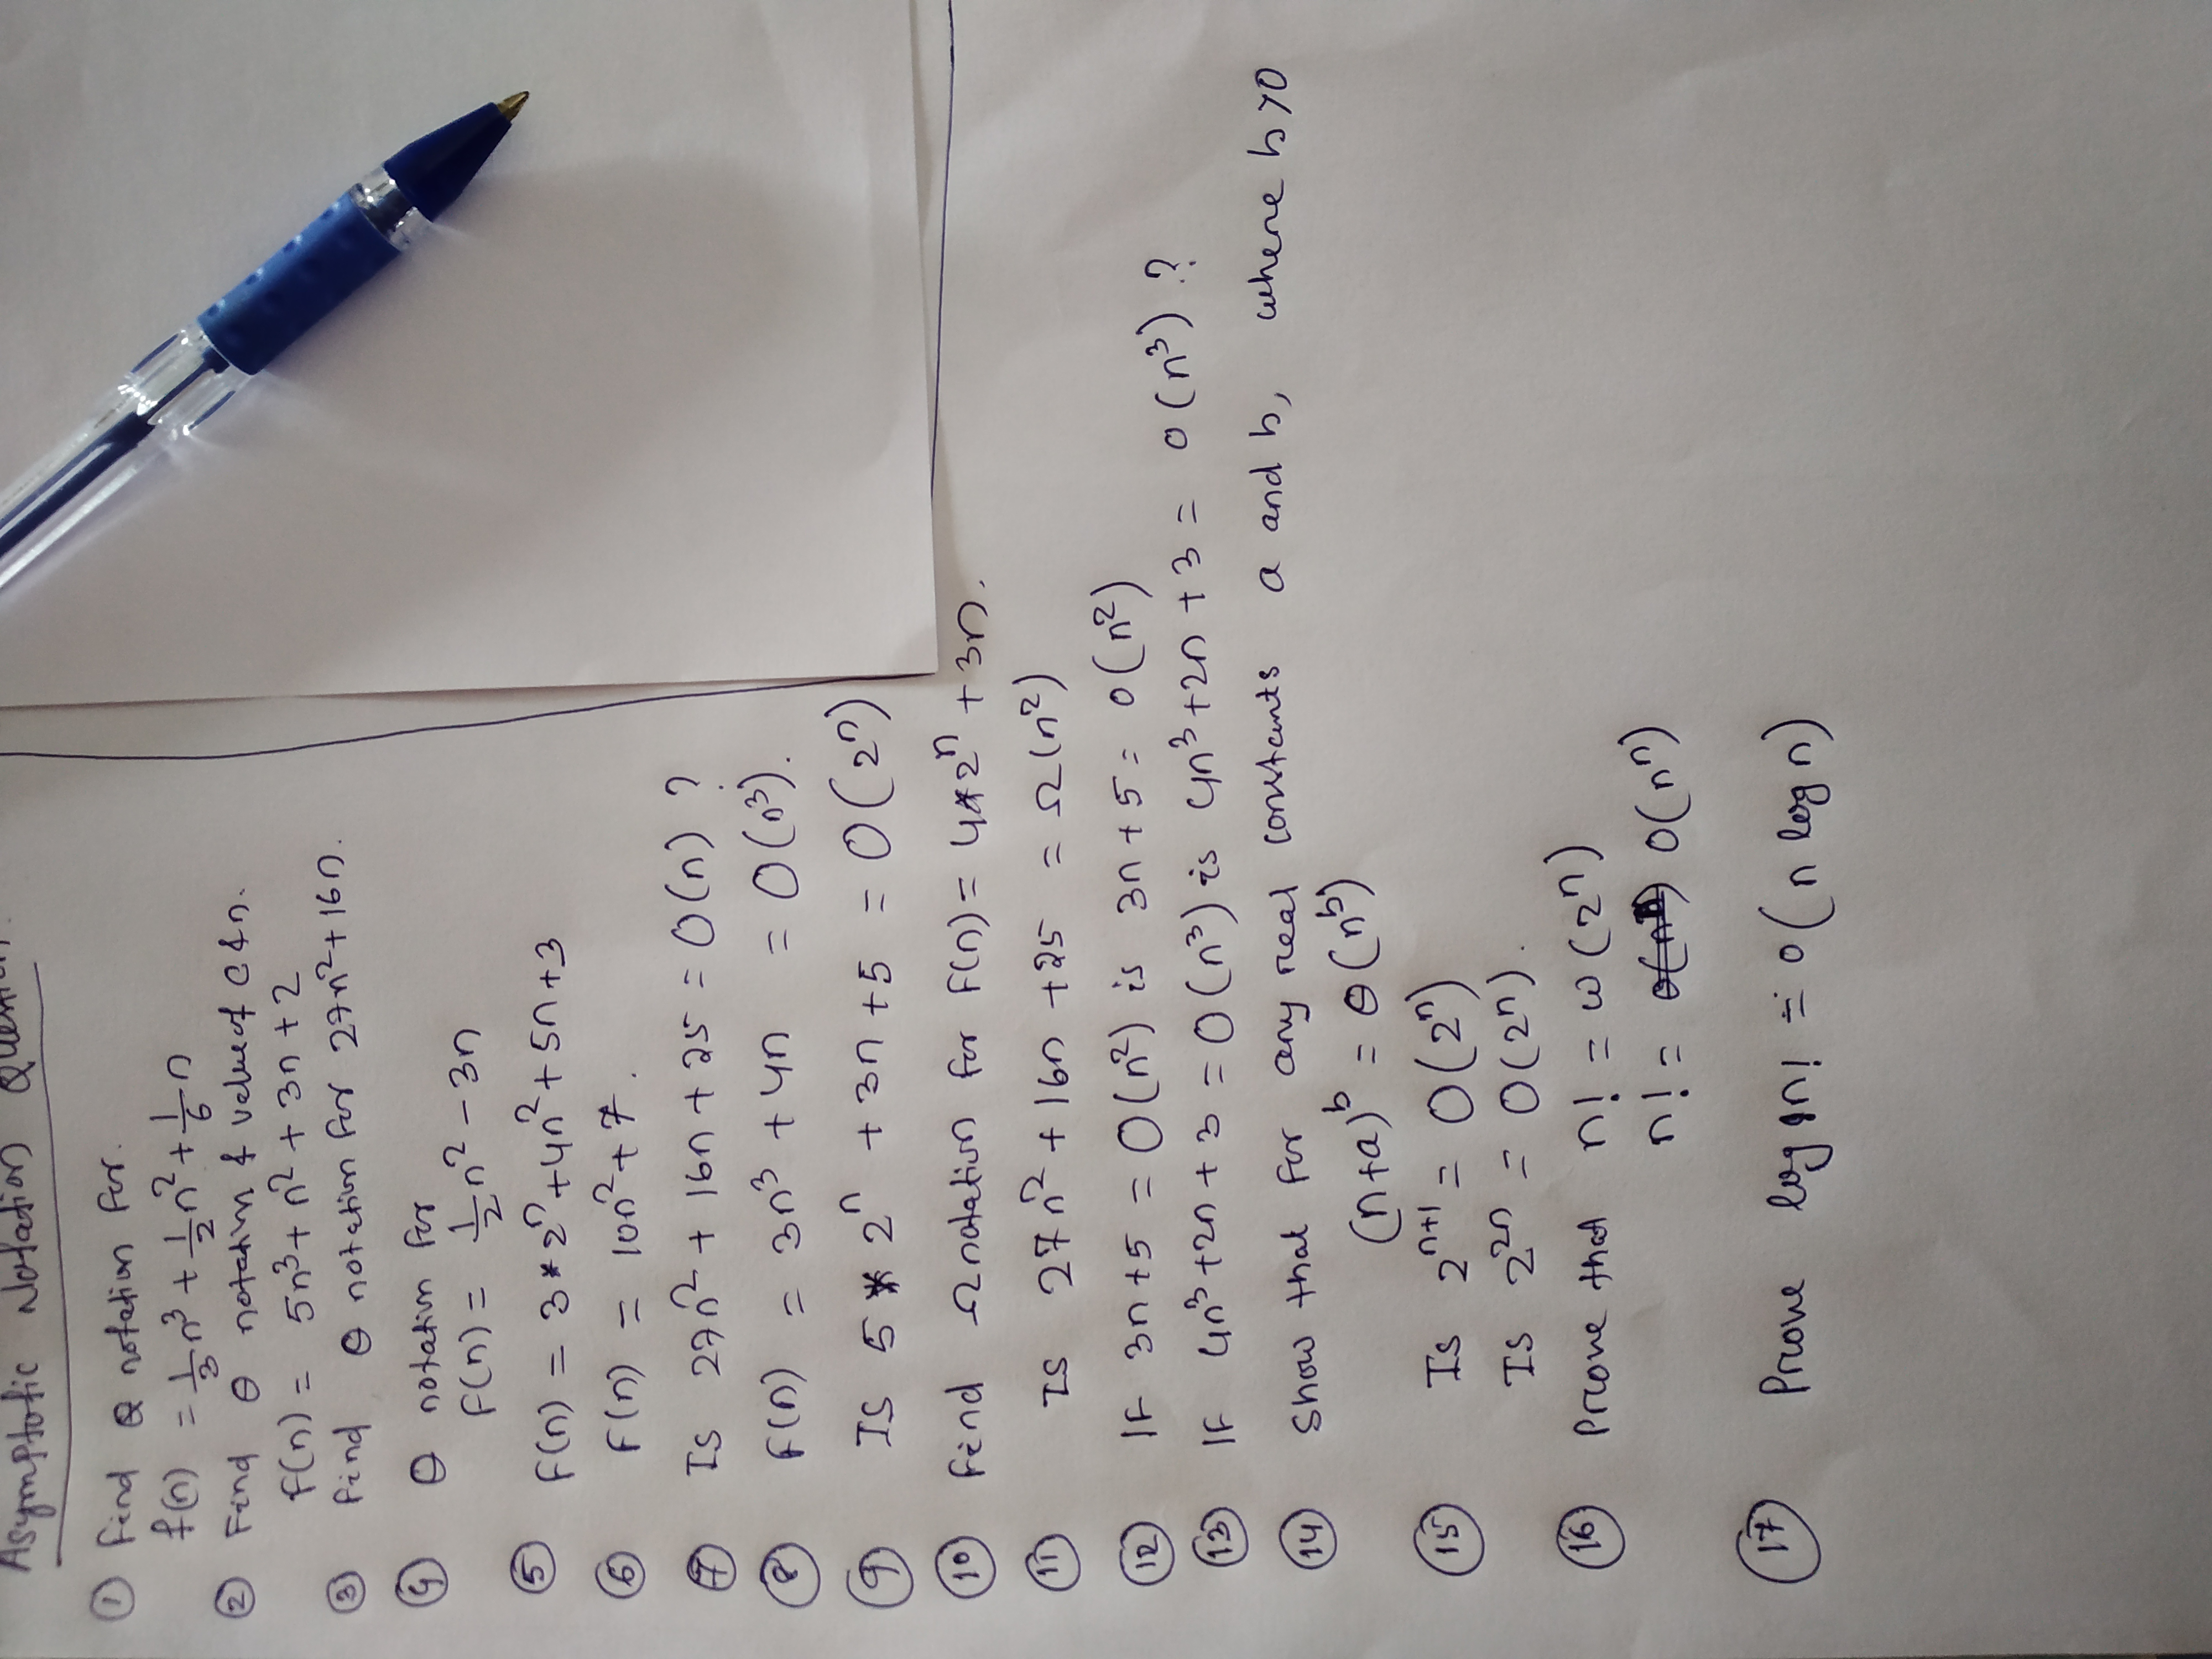 Asymptotic Notation Question
① Find θ notation for.
f(n) = 1/3 n³ + 1/2 n² + 1/6 n
② Find θ notation & value of C & n.
f(n) = 5n³ + n² + 3n + 2
③ Find θ notation for 27n² + 16n.
④ θ notation for
f(n) = 1/2 n² − 3n
⑤ f(n) = 3 * 2ⁿ + 4n² + 5n + 3
⑥ f(n) = 10n² + 7.
⑦ Is 27n² + 16n + 25 = O(n) ?
⑧ f(n) = 3n³ + 4n = O(n³).
⑨ Is 5 * 2ⁿ + 3n + 5 = O(2ⁿ)
⑩ Find Ω notation for f(n) = 4*2ⁿ + 3n.
⑪ Is 27n² + 16n + 25 = Ω(n²)
⑫ IF 3n + 5 = O(n²) is 3n + 5 = o(n²)
⑬ IF 4n³ + 2n + 3 = O(n³) is 4n³ + 2n + 3 = o(n³) ?
⑭ Show that for any real constants a and b, where b > 0
(n+a)ᵇ = θ(nᵇ)
⑮ Is 2ⁿ⁺¹ = O(2ⁿ)
Is 2²ⁿ = O(2ⁿ).
⑯ Prove that n! = ω(2ⁿ)
n! = o(nⁿ)
⑰ Prove log n! = o(n log n)